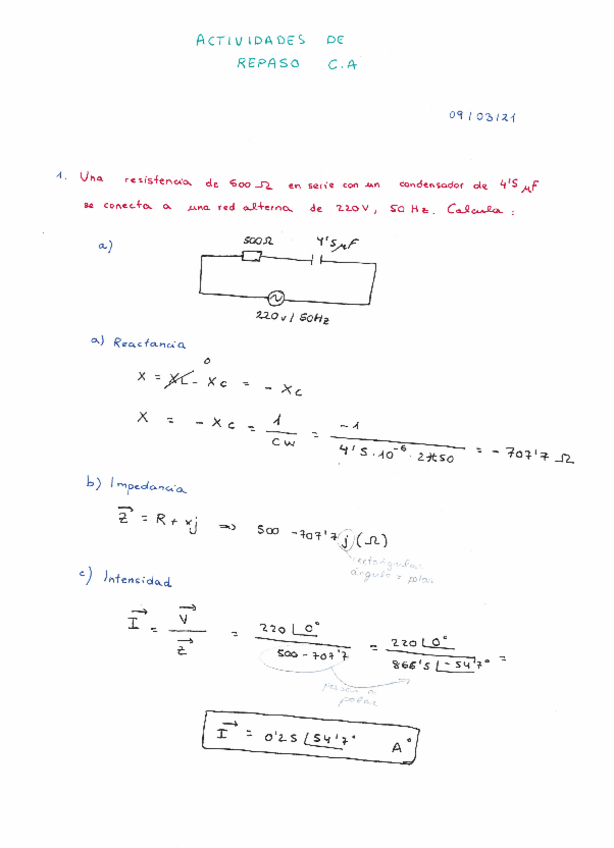 ACTIVIDADES DE
REPASO C.A
09/03/21
1. Una resistencia de 500 Ω en serie con un condensador de 4'5 μF
se conecta a una red alterna de 220V, 50 Hz. Calcula:
a)
500Ω 4'5μF
220v/50Hz
a) Reactancia
0
X = XL - Xc = - Xc
X = - Xc = 1/cw = -1/4'5·10⁻⁶·2π50 = - 707'7 Ω
b) Impedancia
Z⃗ = R + xj ⇒ 500 - 707'7 j (Ω)
rectangular
ángulo = polar
c) Intensidad
I⃗ = V⃗/Z⃗ = 220∠0°/500-707'7 = 220∠0°/866'5∠-54'7° =
pasar a
polar
I⃗ = 0'25∠54'7° A°